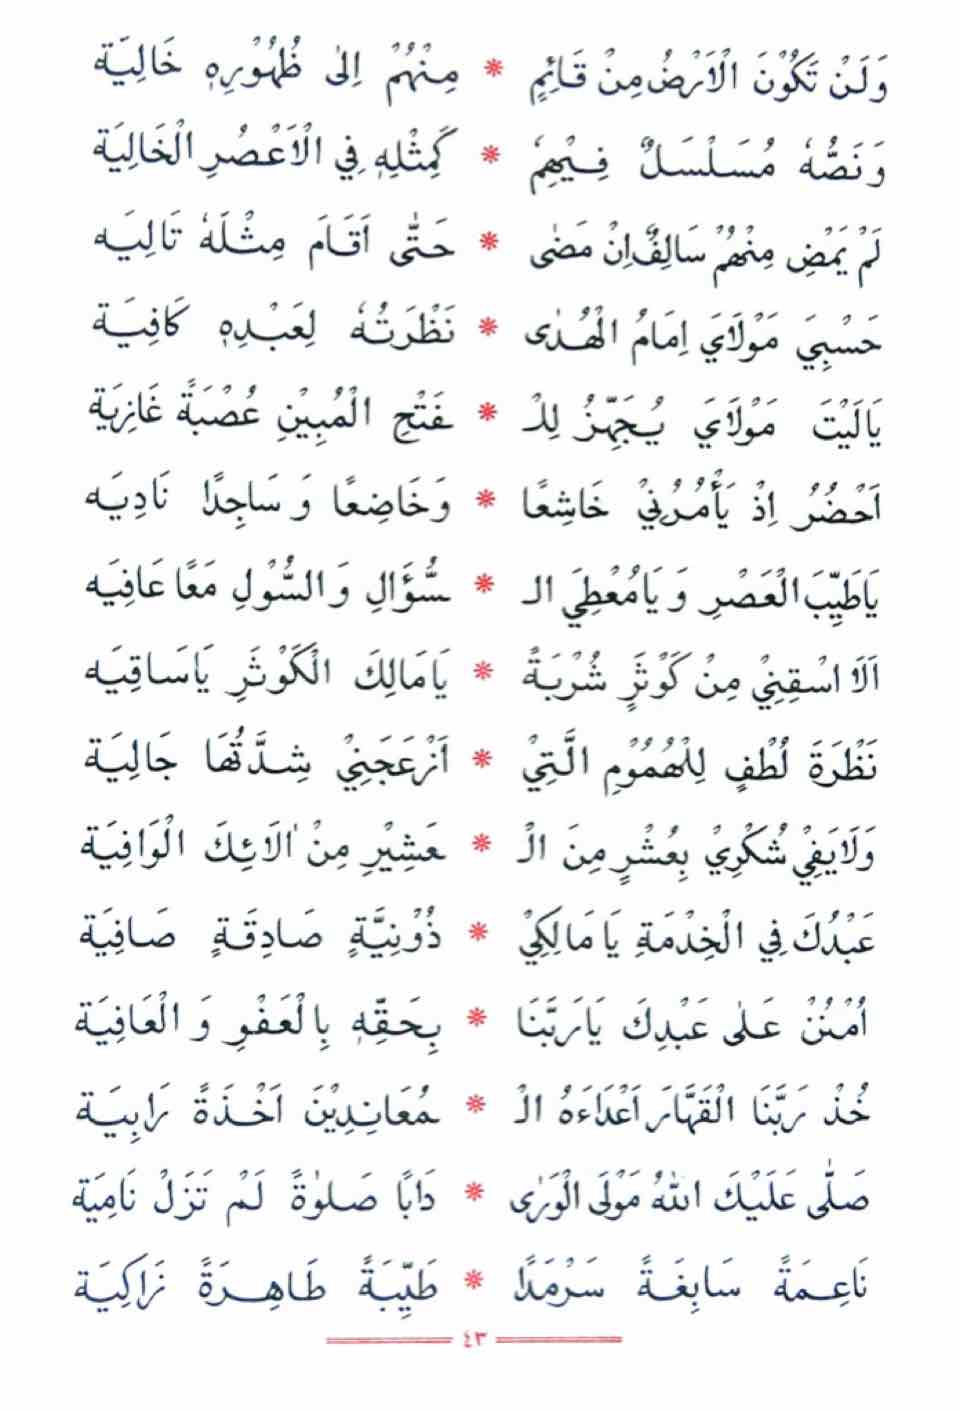 وَلَنْ تَكُوْنَ الْاَرْضُ مِنْ قَائِمٍ * مِنْهُمْ اِلىٰ ظُهُوْرِهٖ خَالِيَة
وَنَصُّهٗ مُسَلْسَلٌ فِيْهِمٗ * كَمِثْلِهٖ فِي الْاَعْصُرِ الْخَالِيَة
لَمْ يَمْضِ مِنْهُمْ سَالِفٌ اِنْ مَضٰى * حَتّٰى اَقَامَ مِثْلَهٗ تَالِيَه
حَسْبِيَ مَوْلَايَ اِمَامُ الْهُدٰى * نَظْرَتُهٗ لِعَبْدِهٖ كَافِيَة
يَالَيْتَ مَوْلَايَ يُجَهِّزُ لِلْـ * ـفَتْحِ الْمُبِيْنِ عُصْبَةً غَازِيَة
اَحْضُرُ اِذْ يَأْمُرُنِيْ خَاشِعًا * وَخَاضِعًا وَسَاجِدًا نَادِيَه
يَاطَيِّبَ الْعَصْرِ وَيَامُعْطِيَ الـ * ـسُّؤَالِ وَالسُّوْلِ مَعًا عَافِيَه
اَلَا اسْقِنِيْ مِنْ كَوْثَرٍ شُرْبَةً * يَامَالِكَ الْكَوْثَرِ يَاسَاقِيَه
نَظْرَةَ لُطْفٍ لِلْهُمُوْمِ الَّتِيْ * اَزْعَجَنِيْ شِدَّتُهَا جَالِيَة
وَلَايَفِيْ شُكْرِيْ بِعُشْرٍ مِنَ الْـ * ـعَشِيْرِ مِنْ اٰلَائِكَ الْوَافِيَة
عَبْدُكَ فِي الْخِدْمَةِ يَا مَالِكِيْ * ذُوْنِيَّةٍ صَادِقَةٍ صَافِيَة
اُمْنُنْ عَلٰى عَبْدِكَ يَارَبَّنَا * بِحَقِّهٖ بِالْعَفْوِ وَالْعَافِيَة
خُذْ رَبَّنَا الْقَهَّارَ اَعْدَاءَهُ الْـ * ـمُعَانِدِيْنَ اَخْذَةً رَابِيَة
صَلّٰى عَلَيْكَ اللّٰهُ مَوْلَى الْوَرٰى * دَابًا صَلٰوةً لَمْ تَزَلْ نَامِيَة
نَاعِمَةً سَابِغَةً سَرْمَدًا * طَيِّبَةً طَاهِرَةً زَاكِيَة
٤٣